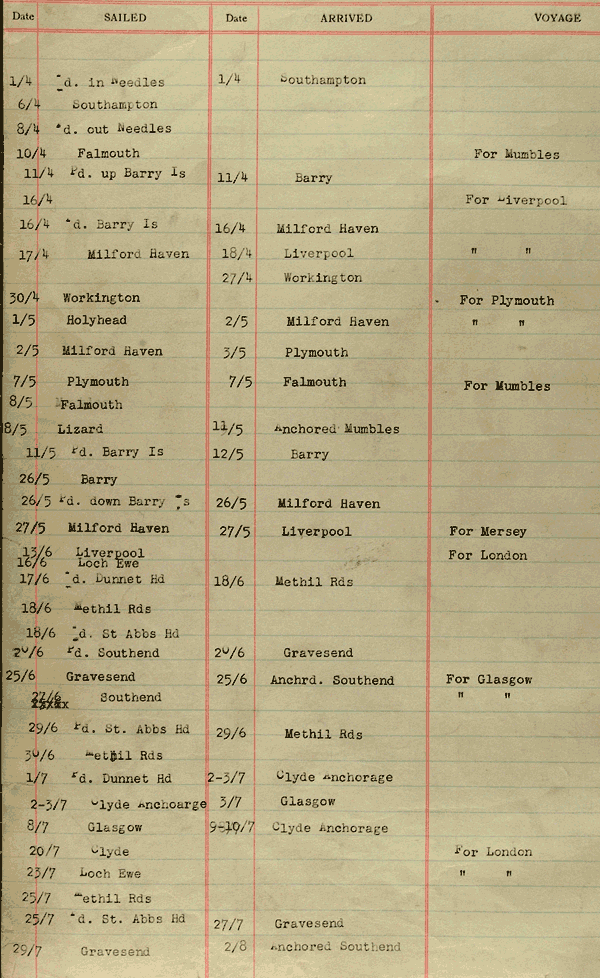 Date SAILED Date ARRIVED VOYAGE
1/4 Pd. in Needles 1/4 Southampton
6/4 Southampton
8/4 Pd. out Needles
10/4 Falmouth For Mumbles
11/4 Pd. up Barry Is 11/4 Barry
16/4 For Liverpool
16/4 Pd. Barry Is 16/4 Milford Haven
17/4 Milford Haven 18/4 Liverpool " "
27/4 Workington
30/4 Workington For Plymouth
1/5 Holyhead 2/5 Milford Haven " "
2/5 Milford Haven 3/5 Plymouth
7/5 Plymouth 7/5 Falmouth For Mumbles
8/5 Falmouth
8/5 Lizard 11/5 Anchored Mumbles
11/5 Pd. Barry Is 12/5 Barry
26/5 Barry
26/5 Pd. down Barry Is 26/5 Milford Haven
27/5 Milford Haven 27/5 Liverpool For Mersey
13/6 Liverpool For London
16/6 Loch Ewe
17/6 Pd. Dunnet Hd 18/6 Methil Rds
18/6 Methil Rds
18/6 Pd. St Abbs Hd
20/6 Pd. Southend 20/6 Gravesend
25/6 Gravesend 25/6 Anchrd. Southend For Glasgow
27/6 Southend " "
29/6 Pd. St. Abbs Hd 29/6 Methil Rds
30/6 Methil Rds
1/7 Pd. Dunnet Hd 2-3/7 Clyde Anchorage
2-3/7 Clyde Anchoarge 3/7 Glasgow
8/7 Glasgow 9-10/7 Clyde Anchorage
20/7 Clyde For London
23/7 Loch Ewe " "
25/7 Methil Rds
25/7 Pd. St. Abbs Hd 27/7 Gravesend
29/7 Gravesend 2/8 Anchored Southend